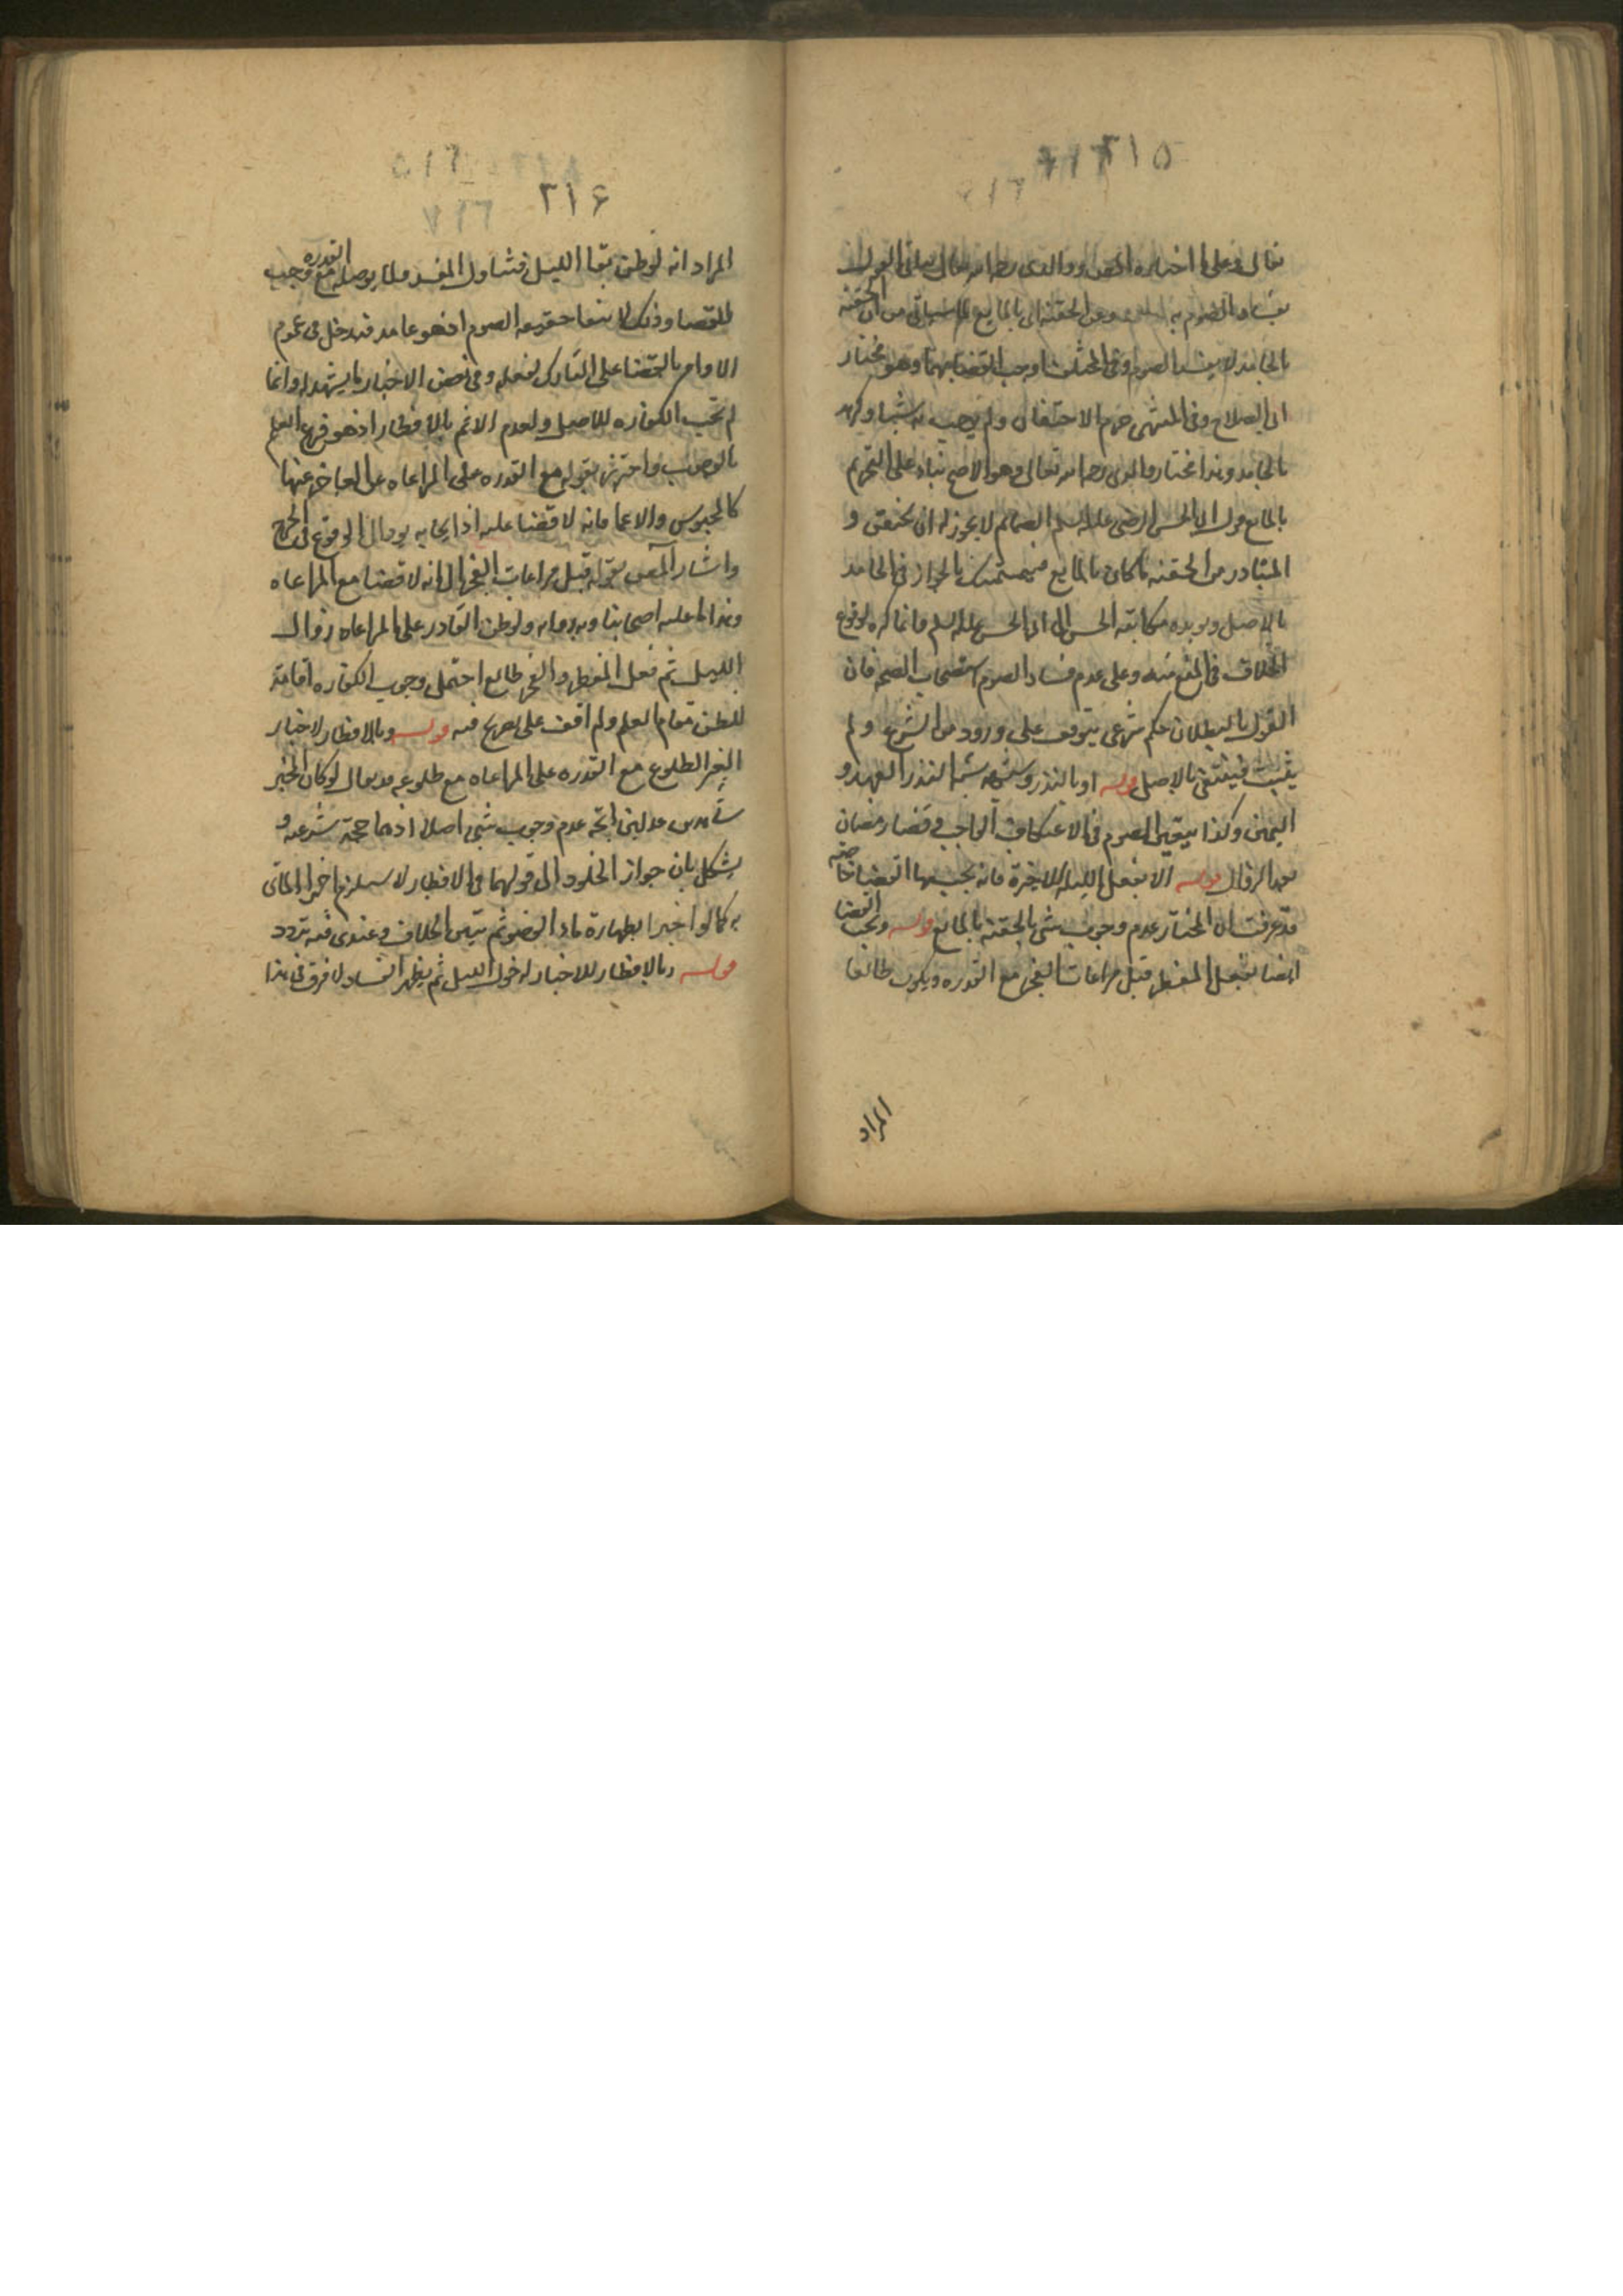 ٢١٥
تعالى وعلى ما اختاره المص ووالدى رحمه الله تعالى
بفساد الصوم به وعن الحقنة اى بالمايع لما سياتى من ان الحقنة
بالجامد لا يفسد الصوم وفى المختلف اوجب القضا بهما وهو مختار
ابى الصلاح وفى المنتهى حرم الاحتقان ولم يوجب به شيئا وكره
بالجامد وهذا مختار والدى رحمه الله تعالى وهو الاصح بناء على التحريم
بالمايع قول ابى الحسن الرضى عليه السلم الصائم لا يجوز له ان يحتقن و
المتبادر من الحقنة ما كان بالمايع فيتمسك بالجواز فى الجامد
بالاصل ويويده مكاتبة الحسن الى ابى الحسن عليه السلم وانما كره لوقوع
الخلاف فى المنع منه وعلى عدم فساد الصوم استصحاب الصحة فان
القول بالبطلان حكم شرعى يتوقف على ورود من الشرع ولم
يثبت فينتفى بالاصل قوله او بالنذر وشبهه شبه النذر العهد و
اليمين وكذا يتعين الصوم فى الاعتكاف الواجب وقضا رمضان
بعد الزوال قوله الا بفعل الليلة الاخرة فانه يجب بها القضا خاصة
قد عرفت ان المختار عدم وجوب شى بالحقنة بالمايع قوله ويجب القضا
ايضا بفعل المفطر قبل مراعات الفجر مع القدره ويكون طالعا
المراد
٢١٦
المراد انه لو ظن بقا الليل فتناول المفسد قبل مع القدره وجب
القضا وذلك لانتفا حقيقة الصوم اذ هو عامد فيدخل فى عموم
الاوامر بالقضا على التارك لفعله وفى بعض الاخبار ما يشهد له وانما
لم تجب الكفاره للاصل ولعدم الاثم بالافطار اذ هو فرع العلم
بالوجوب واحترز بقوله مع القدره على المراعاه عن العاجز عنها
كالمحبوس والاعما فانه لا قضا عليه اذ ايجابه يودى الى الوقوع فى الحرج
واشار المص بقوله قبل مراعات الفجر الى انه لا قضا مع المراعاه
وهذا ما عليه اصحابنا وبه روايه ولو ظن القادر على المراعاه زوال
الليل ثم فعل المفطر والفجر طالع احتمل وجوب الكفاره اقامة
للظن مقام العلم ولم اقف على تصريح فيه قوله وبالافطار لاخبار
الغير الطلوع مع القدره على المراعاه مع طلوعه قد يقال لو كان المخبر
شاهدين عدلين اتجه عدم وجوب شى اصلا اذ هما حجة شرعيه و
يشكل بان جواز الخلود الى قولهما فى الافطار لا يستلزم اجزا الماتى
به كما لو اخبرا بطهارة ماء الوضو ثم تبين الخلاف وعندى فيه تردد
قوله وبالافطار للاخبار بدخول الليل ثم يظهر الفساد لا فرق فى هذا